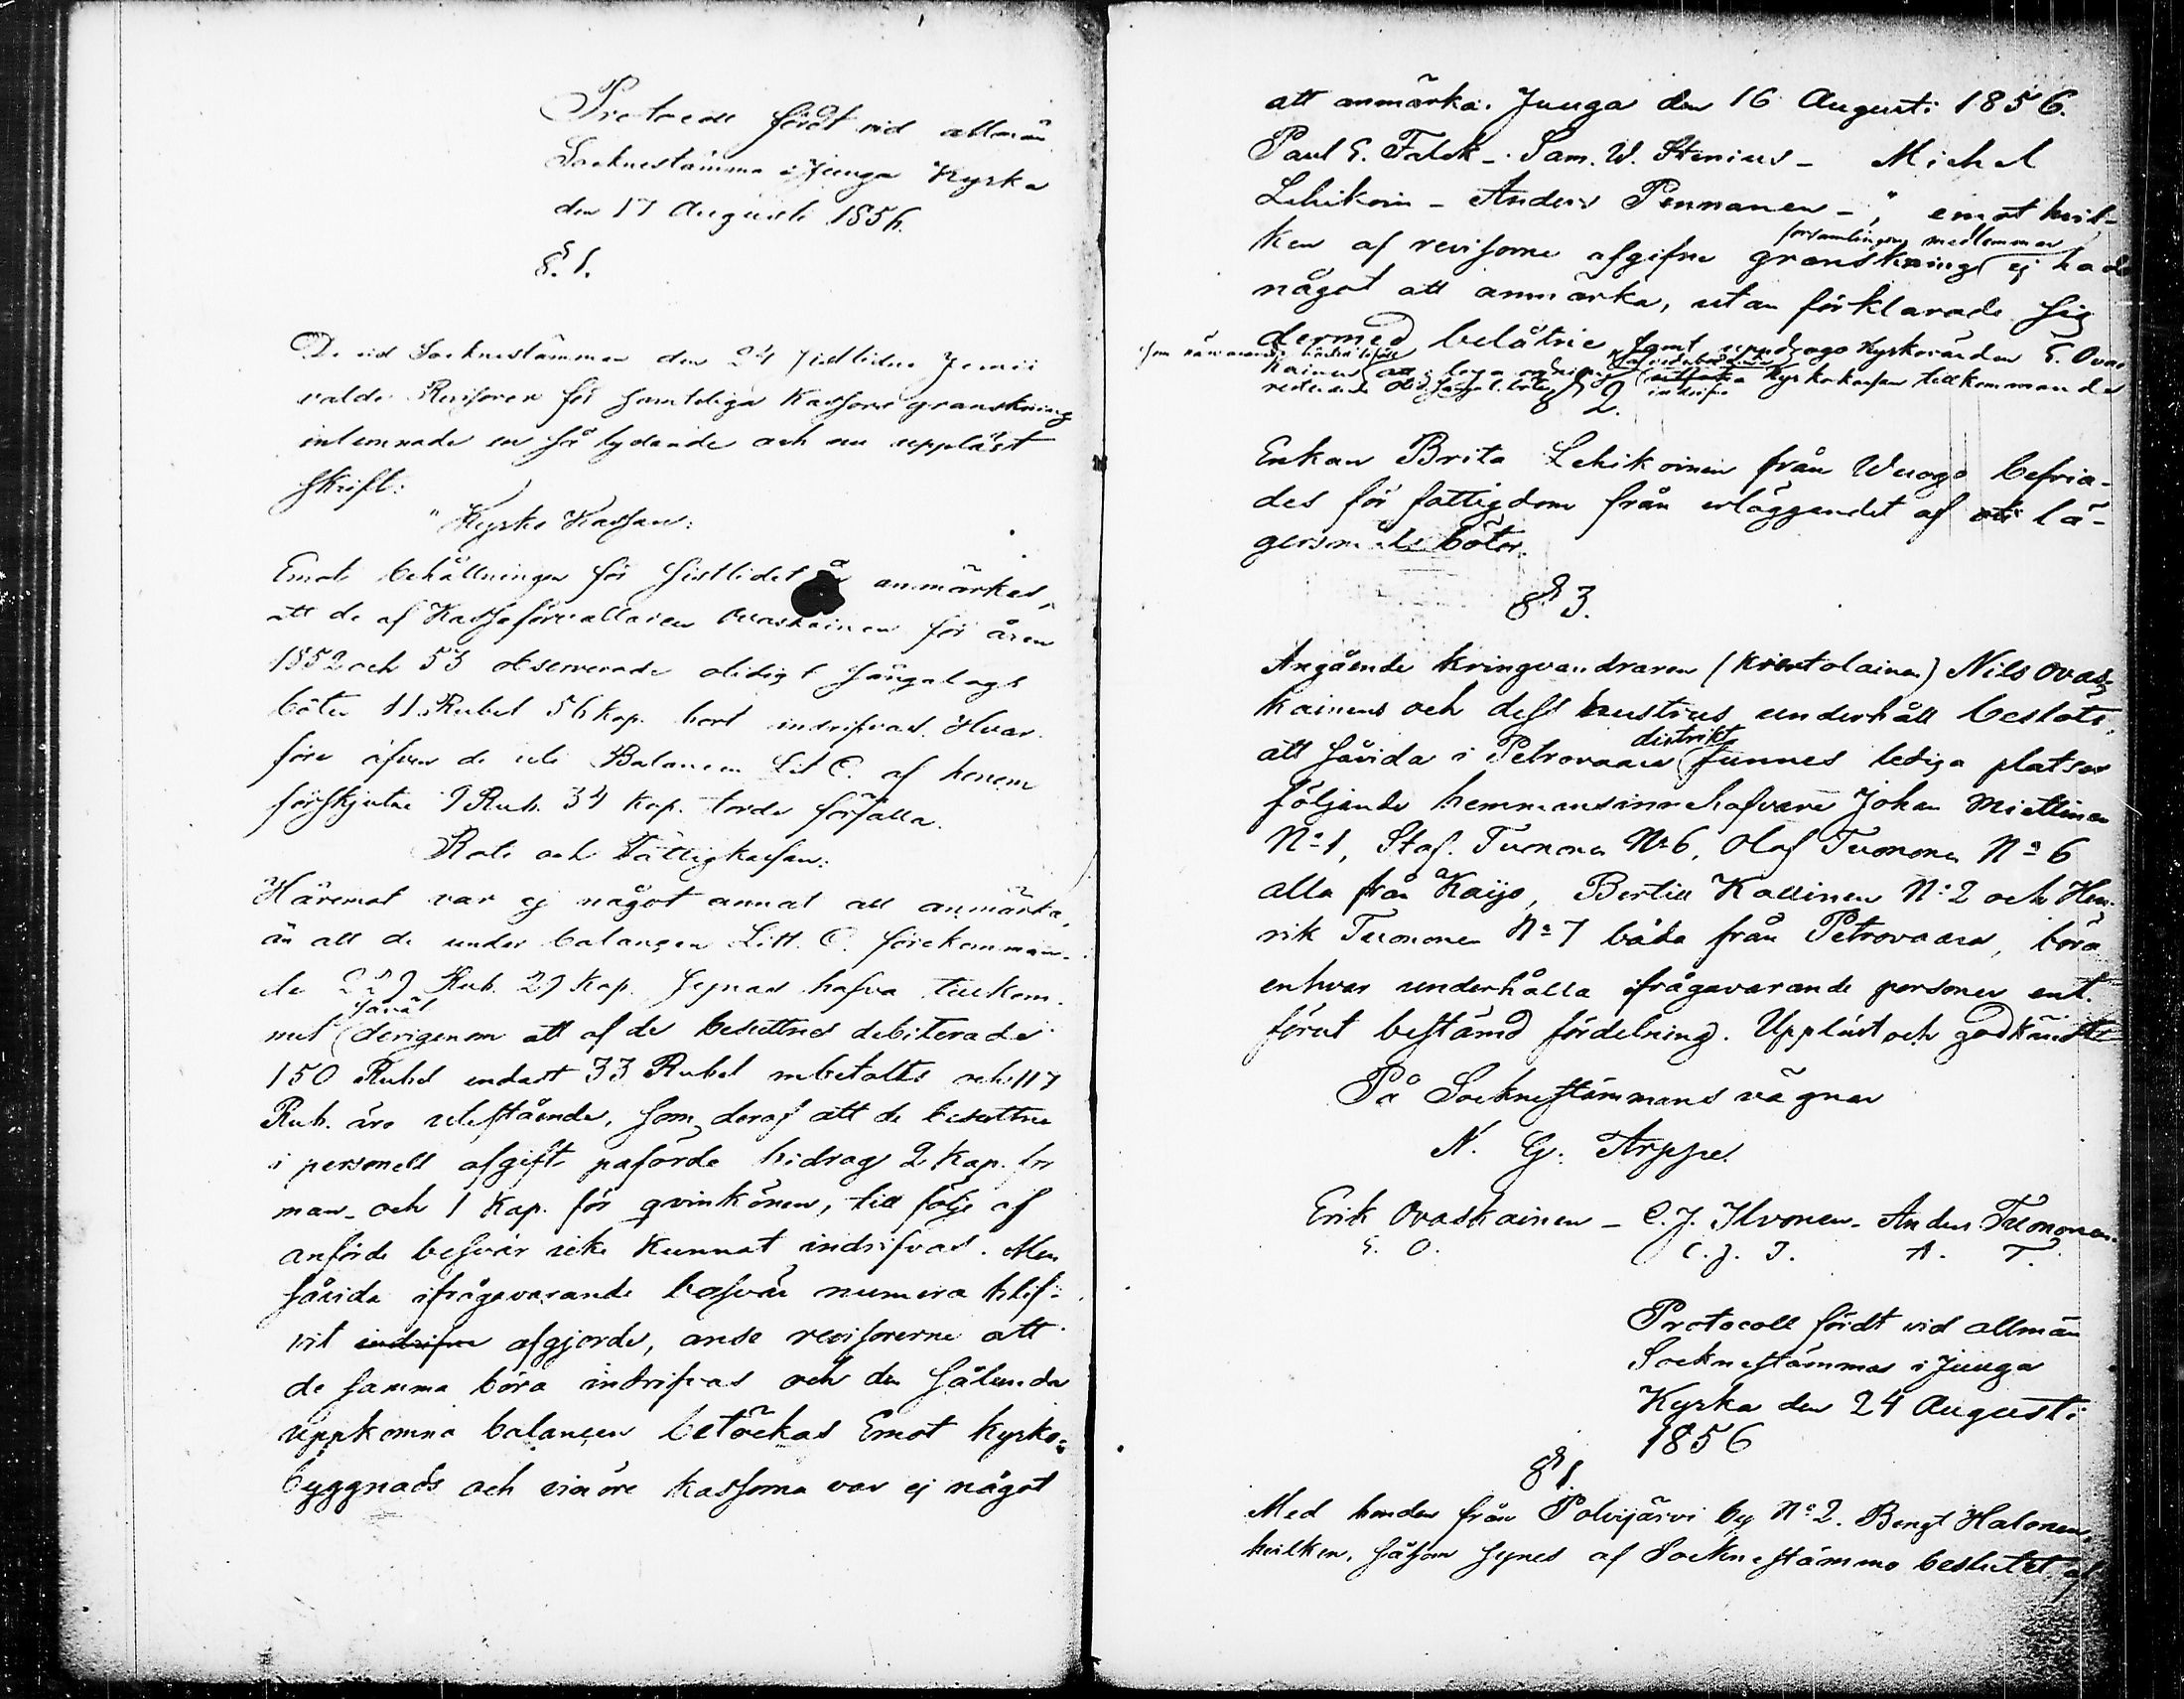 Protocoll fördt vid allmän
Socknestämma i Juuga Kyrka
den 17 Augusti 1856.
§. 1.
De vid Socknestämman den 24 sistlidne Junii
valde Revisorer för samteliga Kassors granskning
inlemnade en så lydande och nu uppläst
skrift:
"Kyrko Kassan:
Emot behållningen för sistlidet år anmärkes,
att de af Kasseförvaltaren Ovaskainen för åren
1852 och 53 observerade olidigt sängalags
böter 11 Rubel 56 kop. bort indrifvas. Hvar-
före äfven de uti Balancen Lit C. af honom
förskjutne 9 Rub. 34 kop. torde förfalla.
Rote och Fattigkassan:
Häremot var ej något annat att anmärka,
än att de under balançen Litt. C. förekomman-
de 229 Rub. 29 Kop. synas hafva tillkom-
såväl
mit derigenom att af de besuttnes debiterade
150 Rubel endast 33 Rubel inbetalts och 117
Rub. äro utestående, som deraf att de besuttne
i personell afgift påförde bidrag 2 Kop. för
man- och 1 Kop. för qvinkönen, till följe af
anförde besvär icke kunnat indrifvas. Men
såvida ifrågavarande besvär numera blif-
vit indrifne afgjorde, anse revisorerne att
de samma böra indrifvas och den sålunda
uppkomna balancen betäckas Emot kyrko-
byggnads och vinöre kassorna var ej något
att anmärka. Juuga den 16 Augusti 1856.
Paul E. Falck -. Sam. W. Stenius - Michel
Lehikoin - Anders Pennanen - ;" emot hvil-
församlingens medlemmar
ken af revisorne afgifne granskning ej hade
något att anmärka, utan förklarade sig
dermed belåtne samt uppdrogo Kyrkovärden E. Ovas-
som närvarande
kainen att laga Kyrkokassan tillkommande
indrifva
§ 2.
Enkan Brita Lehikoinen från Wuogo befria-
des för fattigdom från erläggandet af lä-
gersmåls böter.
§ 3.
Angående kringvandraren (Kontolainen) Nils Ovas-
kainens och dess hustrus underhåll beslöts,
distrikt
att såvida i Petrovaara funnes lediga platser
följande hemmansinnehafvare Johan Miettinen
N:o 1, Staf. Tuononen N:o 6, Olof Tuononen N:o 6
alla från Kajo, Bertill Kallinen N:o 2 och Hen-
rik Tuononen N:o 7 båda från Petrovaara, böra
enhvar underhålla ifrågavarande personer enl.
förut bestämd fördelning. Uppläst och godkändt
På Socknestämmans vägnar
N. G. Arppe.
Erik Ovaskainen - C. J. Ilvonen - Anders Tuononen.
E. O. C. J. I. A. T.
Protocoll fördt vid allmän
Socknestämma i Juuga
Kyrka den 24 Augusti
1856
§ 1.
Med bonden från Polvijärvi by N:o 2. Bengt Halonen,
hvilken, såsom synes af Socknestämmo beslutet af